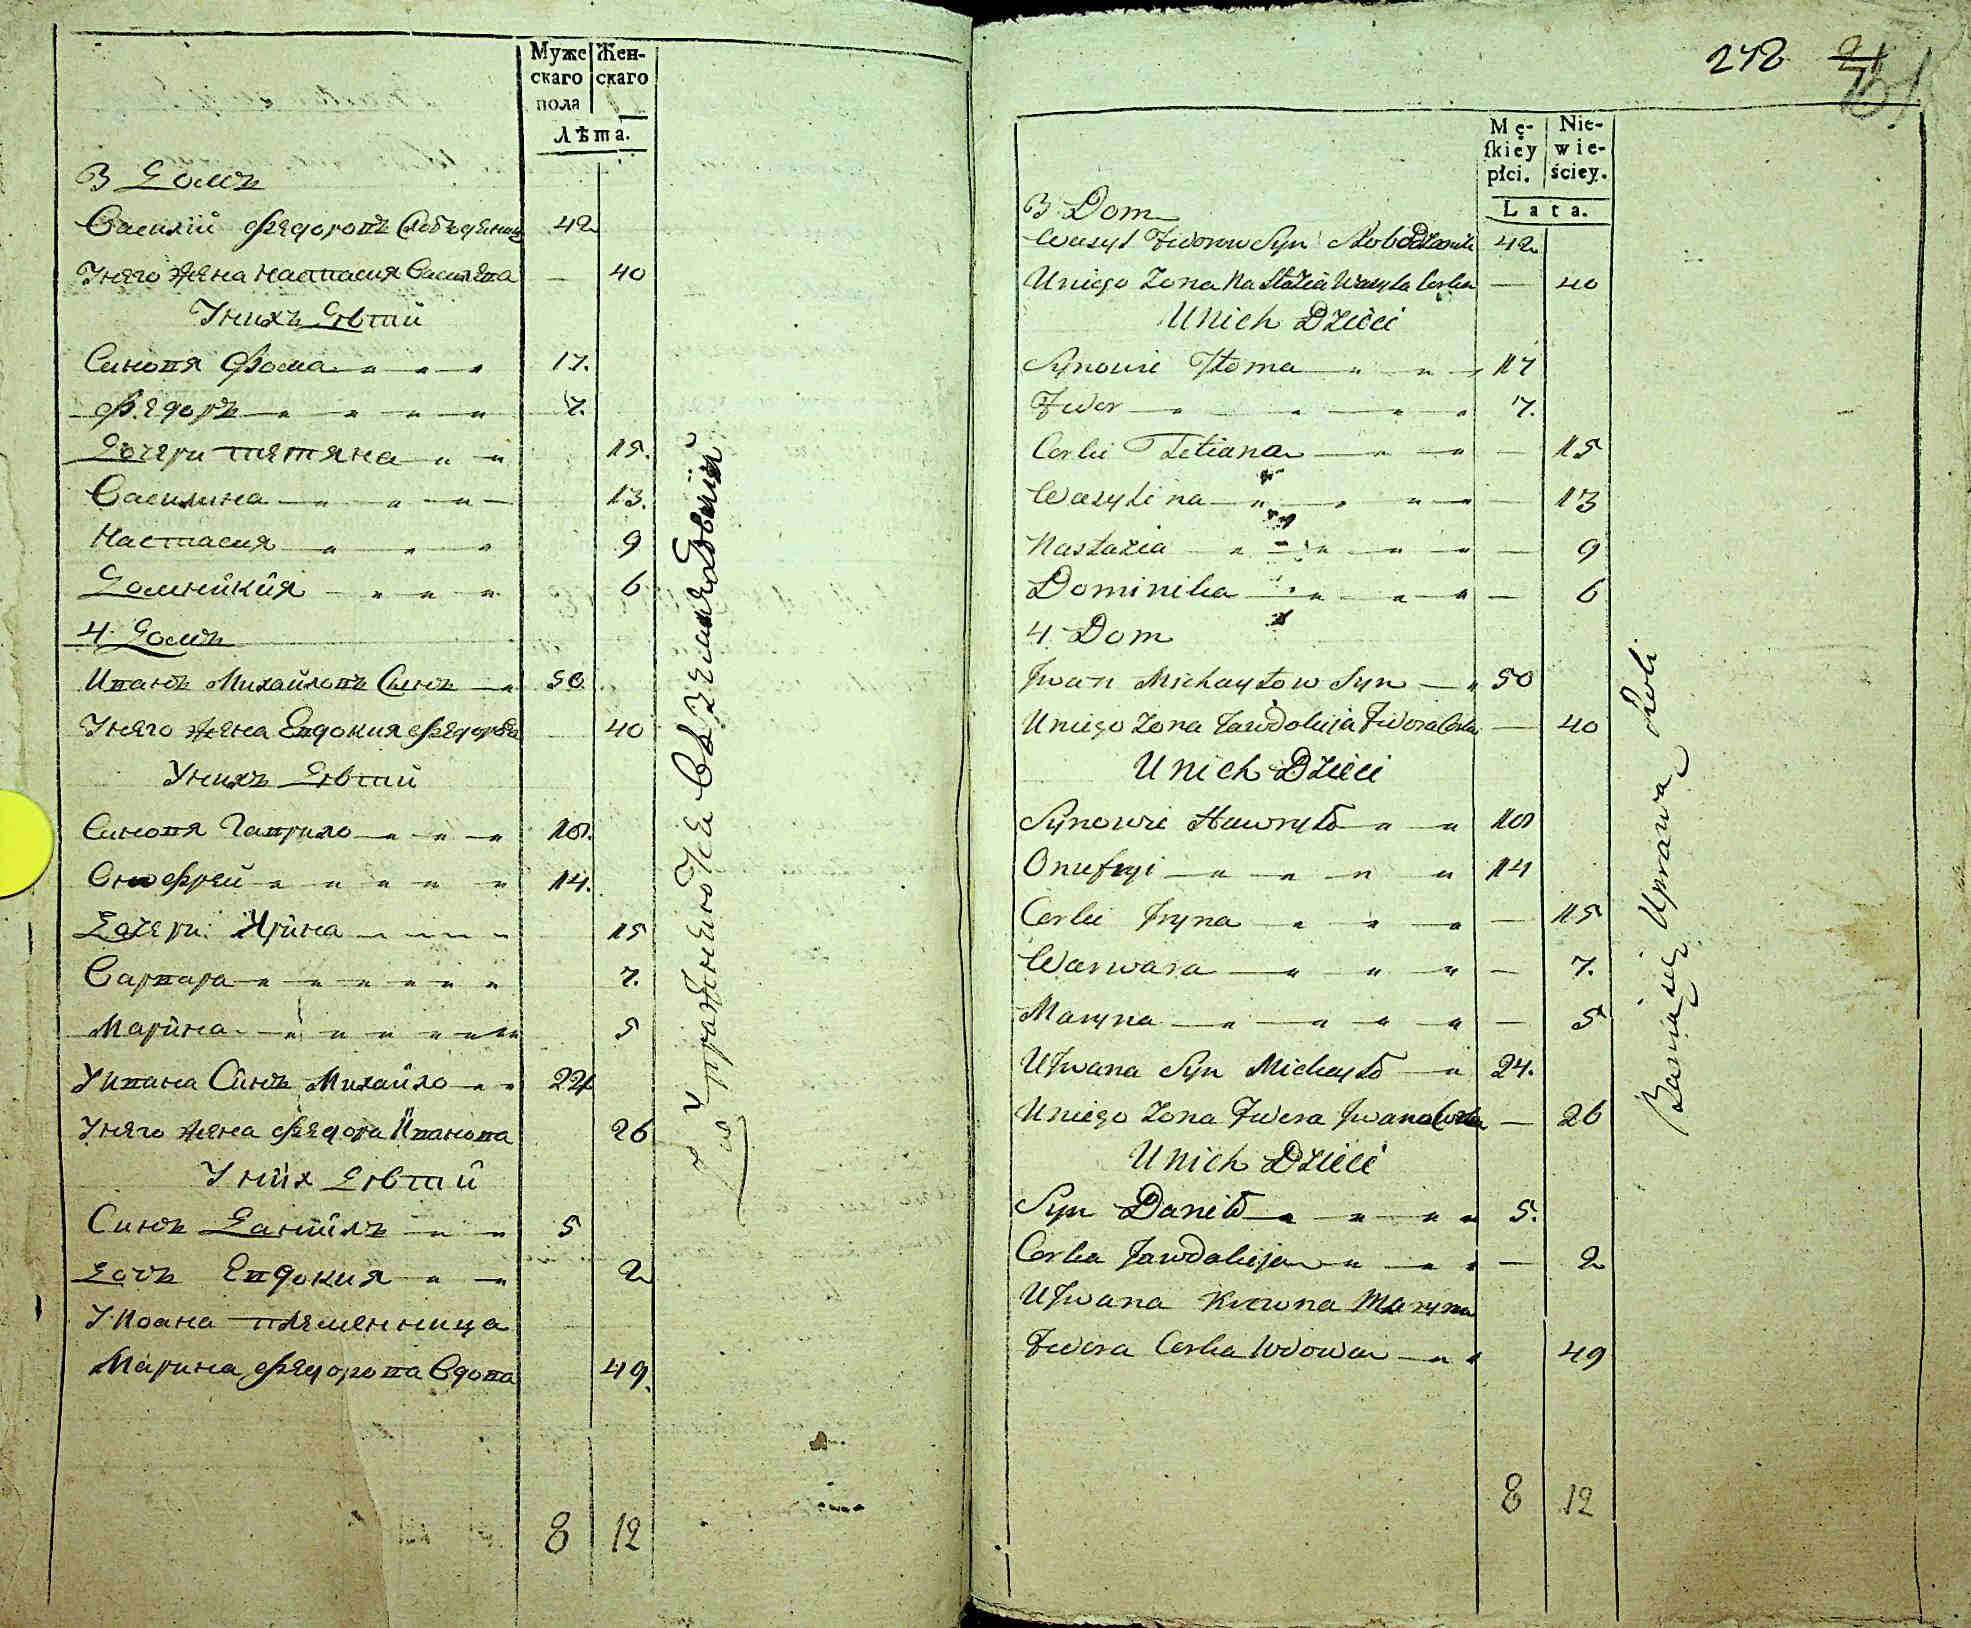 Муже Жен-
скаго скаго
пола
Лѣта.
3 Домъ
Василій Федоровъ Слободяник 42
Унего жена Настасия Василева — 40
Унихъ Дѣтии
Синовя Фома 17.
Федоръ 7.
Дочери Тетяна 15.
Василина 13.
Настасия 9
Домникия 6
4 Домъ
Иванъ Михайловъ Синъ 50.
Унего жена Евдокия Федорова 40
Унихъ Дѣтий
Синовя Гаврило 18.
Онофрей 14.
Дочери Ирина 15
Варвара 7.
Марина 5
У Ивана Синъ Михайло 24
Унего жена Федора Иванова 26
Уних Дѣтий
Синъ Данйилъ 5
Дочъ Евдокия 2
У Ивана племенница
Марина Федорова Вдова 49.
8 12
Упражнение
242
Mę- Nie-
ſkiey wie-
płci. ściey.
Lata.
3 Dom
Wasyl Fedorow Syn Slobodzanik 42
Uniego Zona Nastazia Wasyla Corka — 40
Unich Dzieci
Synowie Thoma 17
Fedor 7.
Corki Tetiana — 15
Wasylina — 13
Nastazia — 9
Dominika — 6
4 Dom
Jwan Michayłow Syn 50
Uniego Zona Jawdokija Fedora Corka — 40
Unich Dzieci
Synowie Hawryło 18
Onufryi 14
Corki Jryna — 15
Warwara — 7.
Maryna — 5
U Jwana Syn Michayło 24.
Uniego Zona Fedora Jwana Corka — 26
Unich Dzieci
Syn Daniło 5.
Corka Jawdokija — 2
U Jwana Krewna Maryna
Fedora Corka Wdowa 49
8 12
Bawią się Uprawą Roli